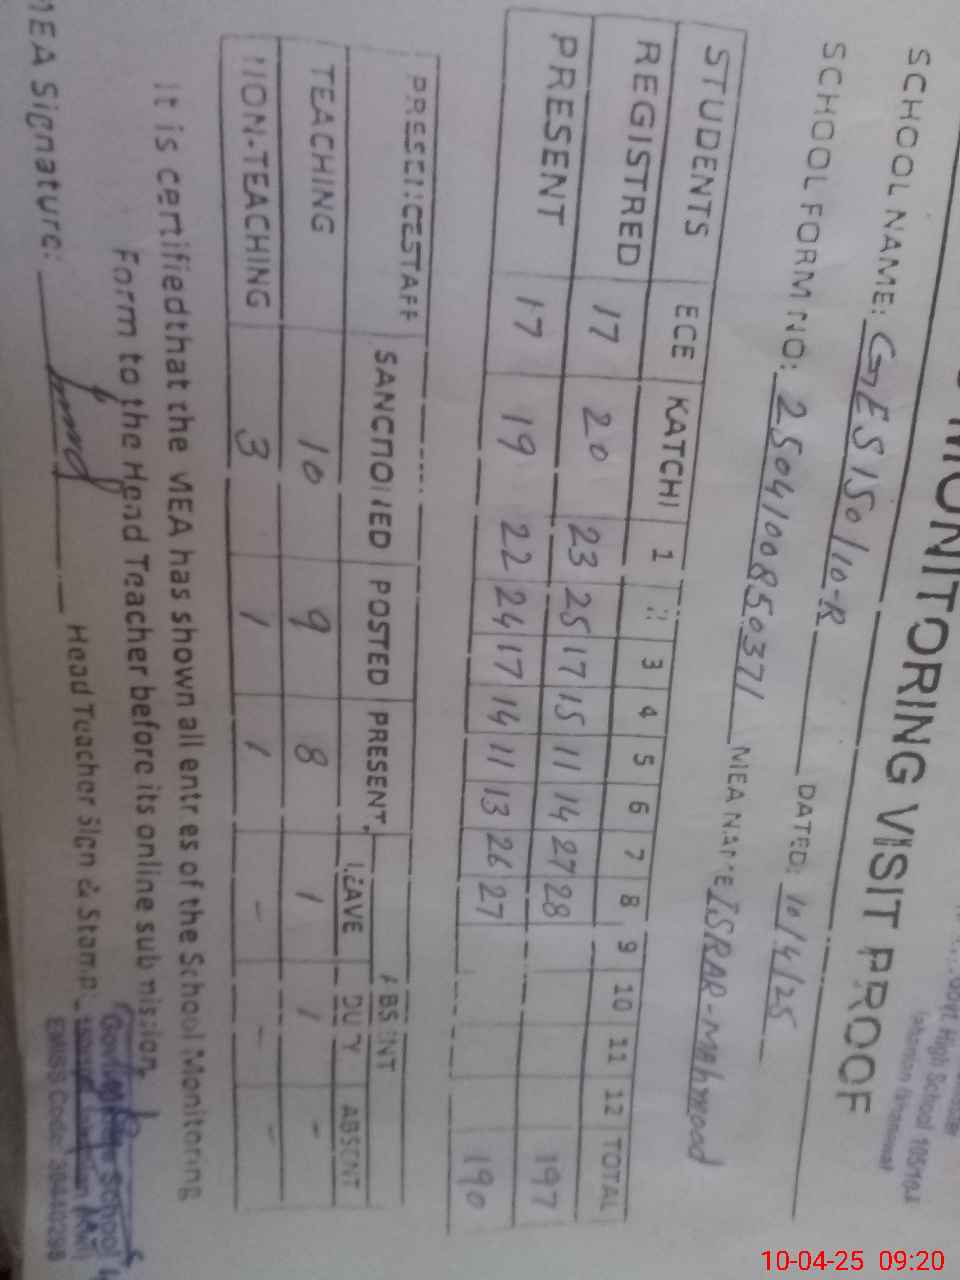 MONITORING VISIT PROOF
SCHOOL NAME: GES 150/10-R DATED: 10/4/25
SCHOOL FORM NO: 2504100850371 MEA NAME ISRAR-Mahmood
STUDENTS ECE KATCHI 1 2 3 4 5 6 7 8 9 10 11 12 TOTAL
REGISTRED 17 20 23 25 17 15 11 14 27 28 197
PRESENT 17 19 22 24 17 14 11 13 26 27 190
STAFF SANCTIONED POSTED PRESENT ABSENT
LEAVE DUTY ABSENT
TEACHING 10 9 8 1 1 -
NON-TEACHING 3 1 1 - - -
It is certified that the MEA has shown all entries of the School Monitoring
Form to the Head Teacher before its online submission.
MEA Signature: Head Teacher Sign & Stamp:
Govt. High School
EMIS Code:
10-04-25 09:20